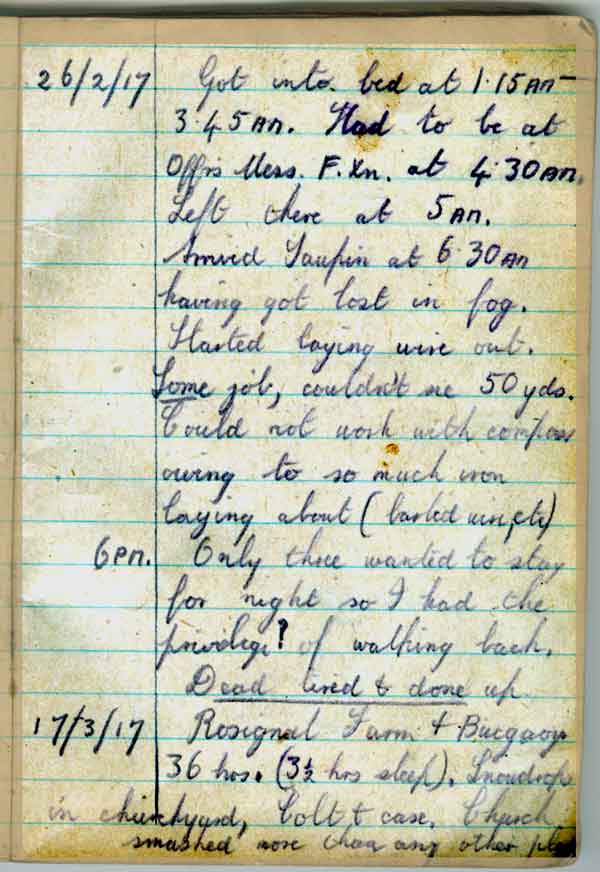 26/2/17 Got into bed at 1·15 AM -
3·45 AM. Had to be at
Offrs Mess. F. Xn. at 4·30 AM.
Left there at 5 AM.
Arrived Saupin at 6·30 AM
having got lost in fog.
Started laying wire out.
Some job, couldn't see 50 yds.
Could not work with compass
owing to so much iron
laying about (barbed wire, etc)
6 PM. Only three wanted to stay
for night so I had the
privilege? of walking back.
Dead tired & done up
17/3/17 Rosignal Farm & Bucquoy
36 hrs. (3½ hrs sleep). Snowdrops
in churchyard, Colt & case. Church
smashed more than any other